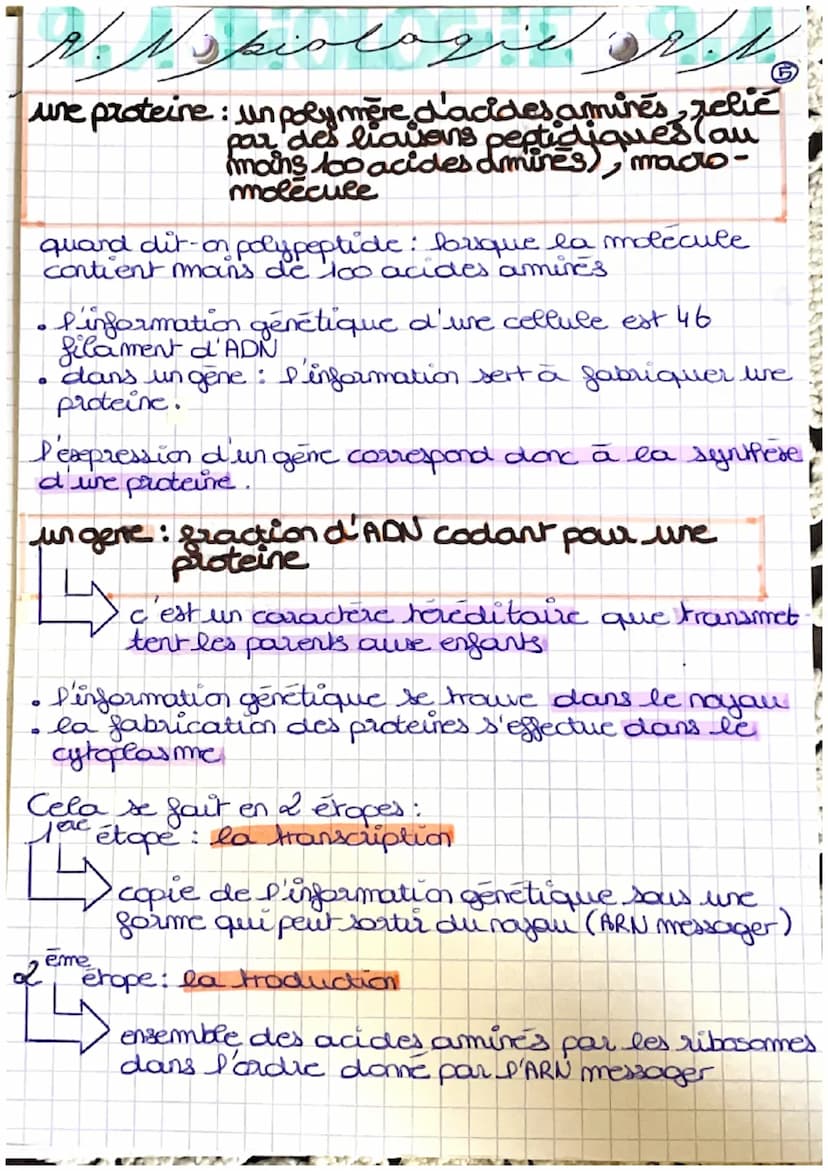 N.N biologie N.N
5
une proteine : un polymère d'acides aminés, relié
par des liaisons peptidiques (au
moins 100 acides aminés), macro-
molécule
quand dit-on polypeptide : lorsque la molécule
contient moins de 100 acides aminés
• l'information génétique d'une cellule est 46
filament d'ADN
• dans un gène : l'information sert à fabriquer une
proteine.
l'expression d'un gène correspond donc à la synthèse
d'une proteine.
un gene : fraction d'ADN codant pour une
proteine
c'est un caractère héréditaire que transmet-
tent les parents aux enfants
• l'information génétique se trouve dans le noyau
• la fabrication des proteines s'effectue dans le
cytoplasme
Cela se fait en 2 étapes :
1ère étape : la transcription
copie de l'information génétique sous une
forme qui peut sortir du noyau (ARN messager)
2ème étape : la traduction
ensemble des acides aminés par les ribosomes
dans l'ordre donné par l'ARN messager